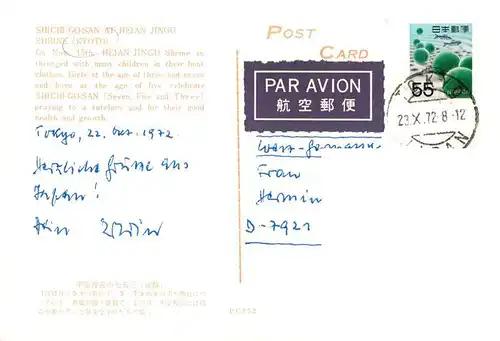 SHICHI-GO-SAN AT HEIAN JINGU
SHRINE (KYOTO)
On Nov. 15th, HEIAN JINGU Shrine is
thronged with many children in their best
clothes. Girls at the age of three and seven
and boys at the age of five celebrate
SHICHI-GO-SAN (Seven, Five and Three)
praying to a tutelary god for their good
health and growth.
Tokyo, 22. Okt. 1972
Herzliche Grüsse aus
Japan!
Dein Erwin
POST
CARD
PAR AVION
航空郵便
日本郵便
55
NIPPON
23.X.72.8-12
JAPAN
West-Germany
Frau
Hermin
D-7921
平安神宮の七五三（京都）
PC252